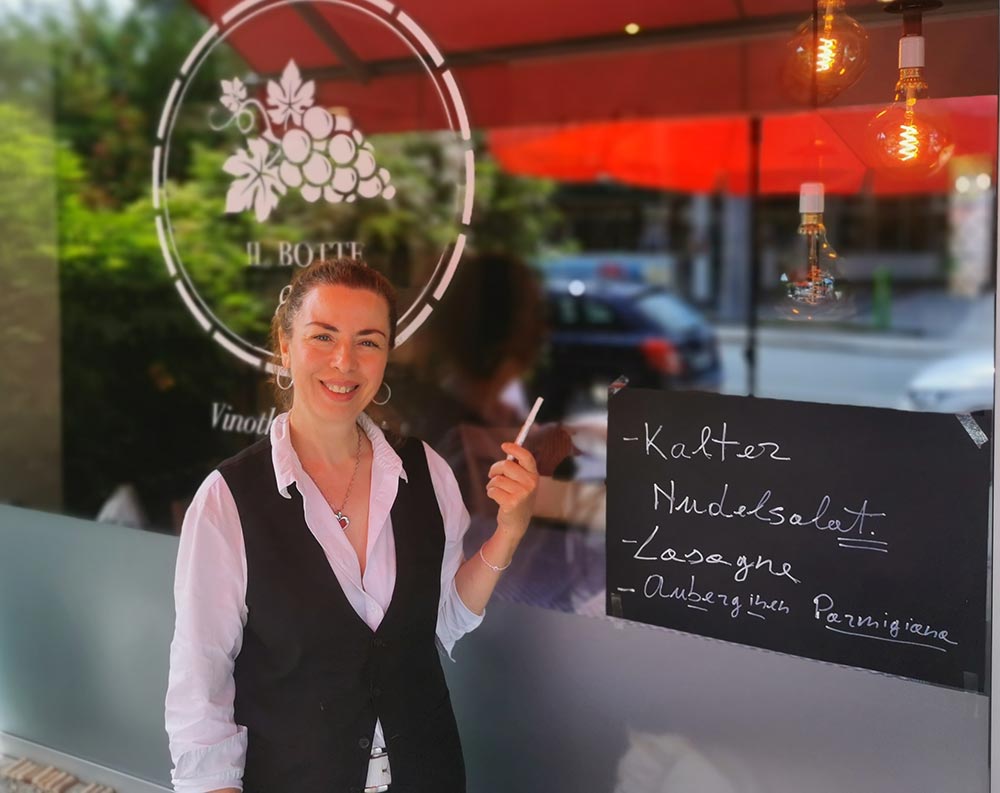 IL BOTTE
- Kalter
Nudelsalat.
- Lasagne
- Auberginen Parmigiana